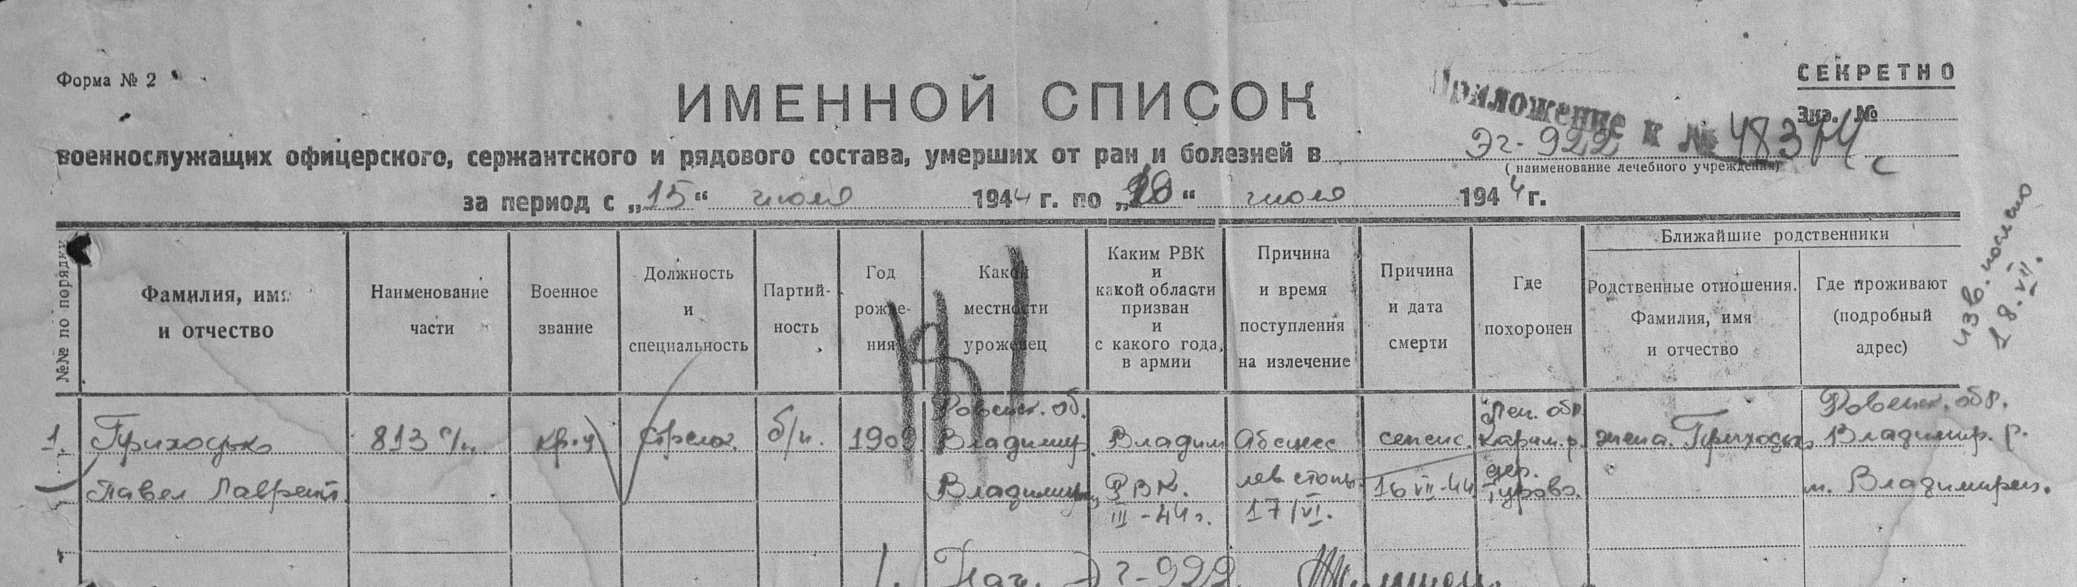 Форма № 2
СЕКРЕТНО
ИМЕННОЙ СПИСОК
Приложение к № 48314 с
Экз. №
военнослужащих офицерского, сержантского и рядового состава, умерших от ран и болезней в Эг-922
(наименование лечебного учреждения)
за период с „15“ июля 1944 г. по „20“ июля 1944 г.
изв. послано
18.VII.
№№ по порядку
Фамилия, имя
и отчество
Наименование
части
Военное
звание
Должность
и
специальность
Партий-
ность
Год
рожде-
ния
Какой
местности
уроженец
Каким РВК
и
какой области
призван
и
с какого года,
в армии
Причина
и время
поступления
на излечение
Причина
и дата
смерти
Где
похоронен
Ближайшие родственники
Родственные отношения.
Фамилия, имя
и отчество
Где проживают
(подробный
адрес)
1
Приходько
Павел Лаврент.
813 с/п.
кр-ц
стрелок.
б/п.
1902
Ровенск. об.
Владимир.
Владимирец
Владим
РВК.
III-44 г.
Абсцесс
лев стопы.
17/VI.
сепсис.
16 VII-44
Лен. обл.
Карам. р.
дер.
Турово.
жена. Приходько
Ровенск. обл.
Владимир. р.
м. Владимирец.
Нач. Эг-922